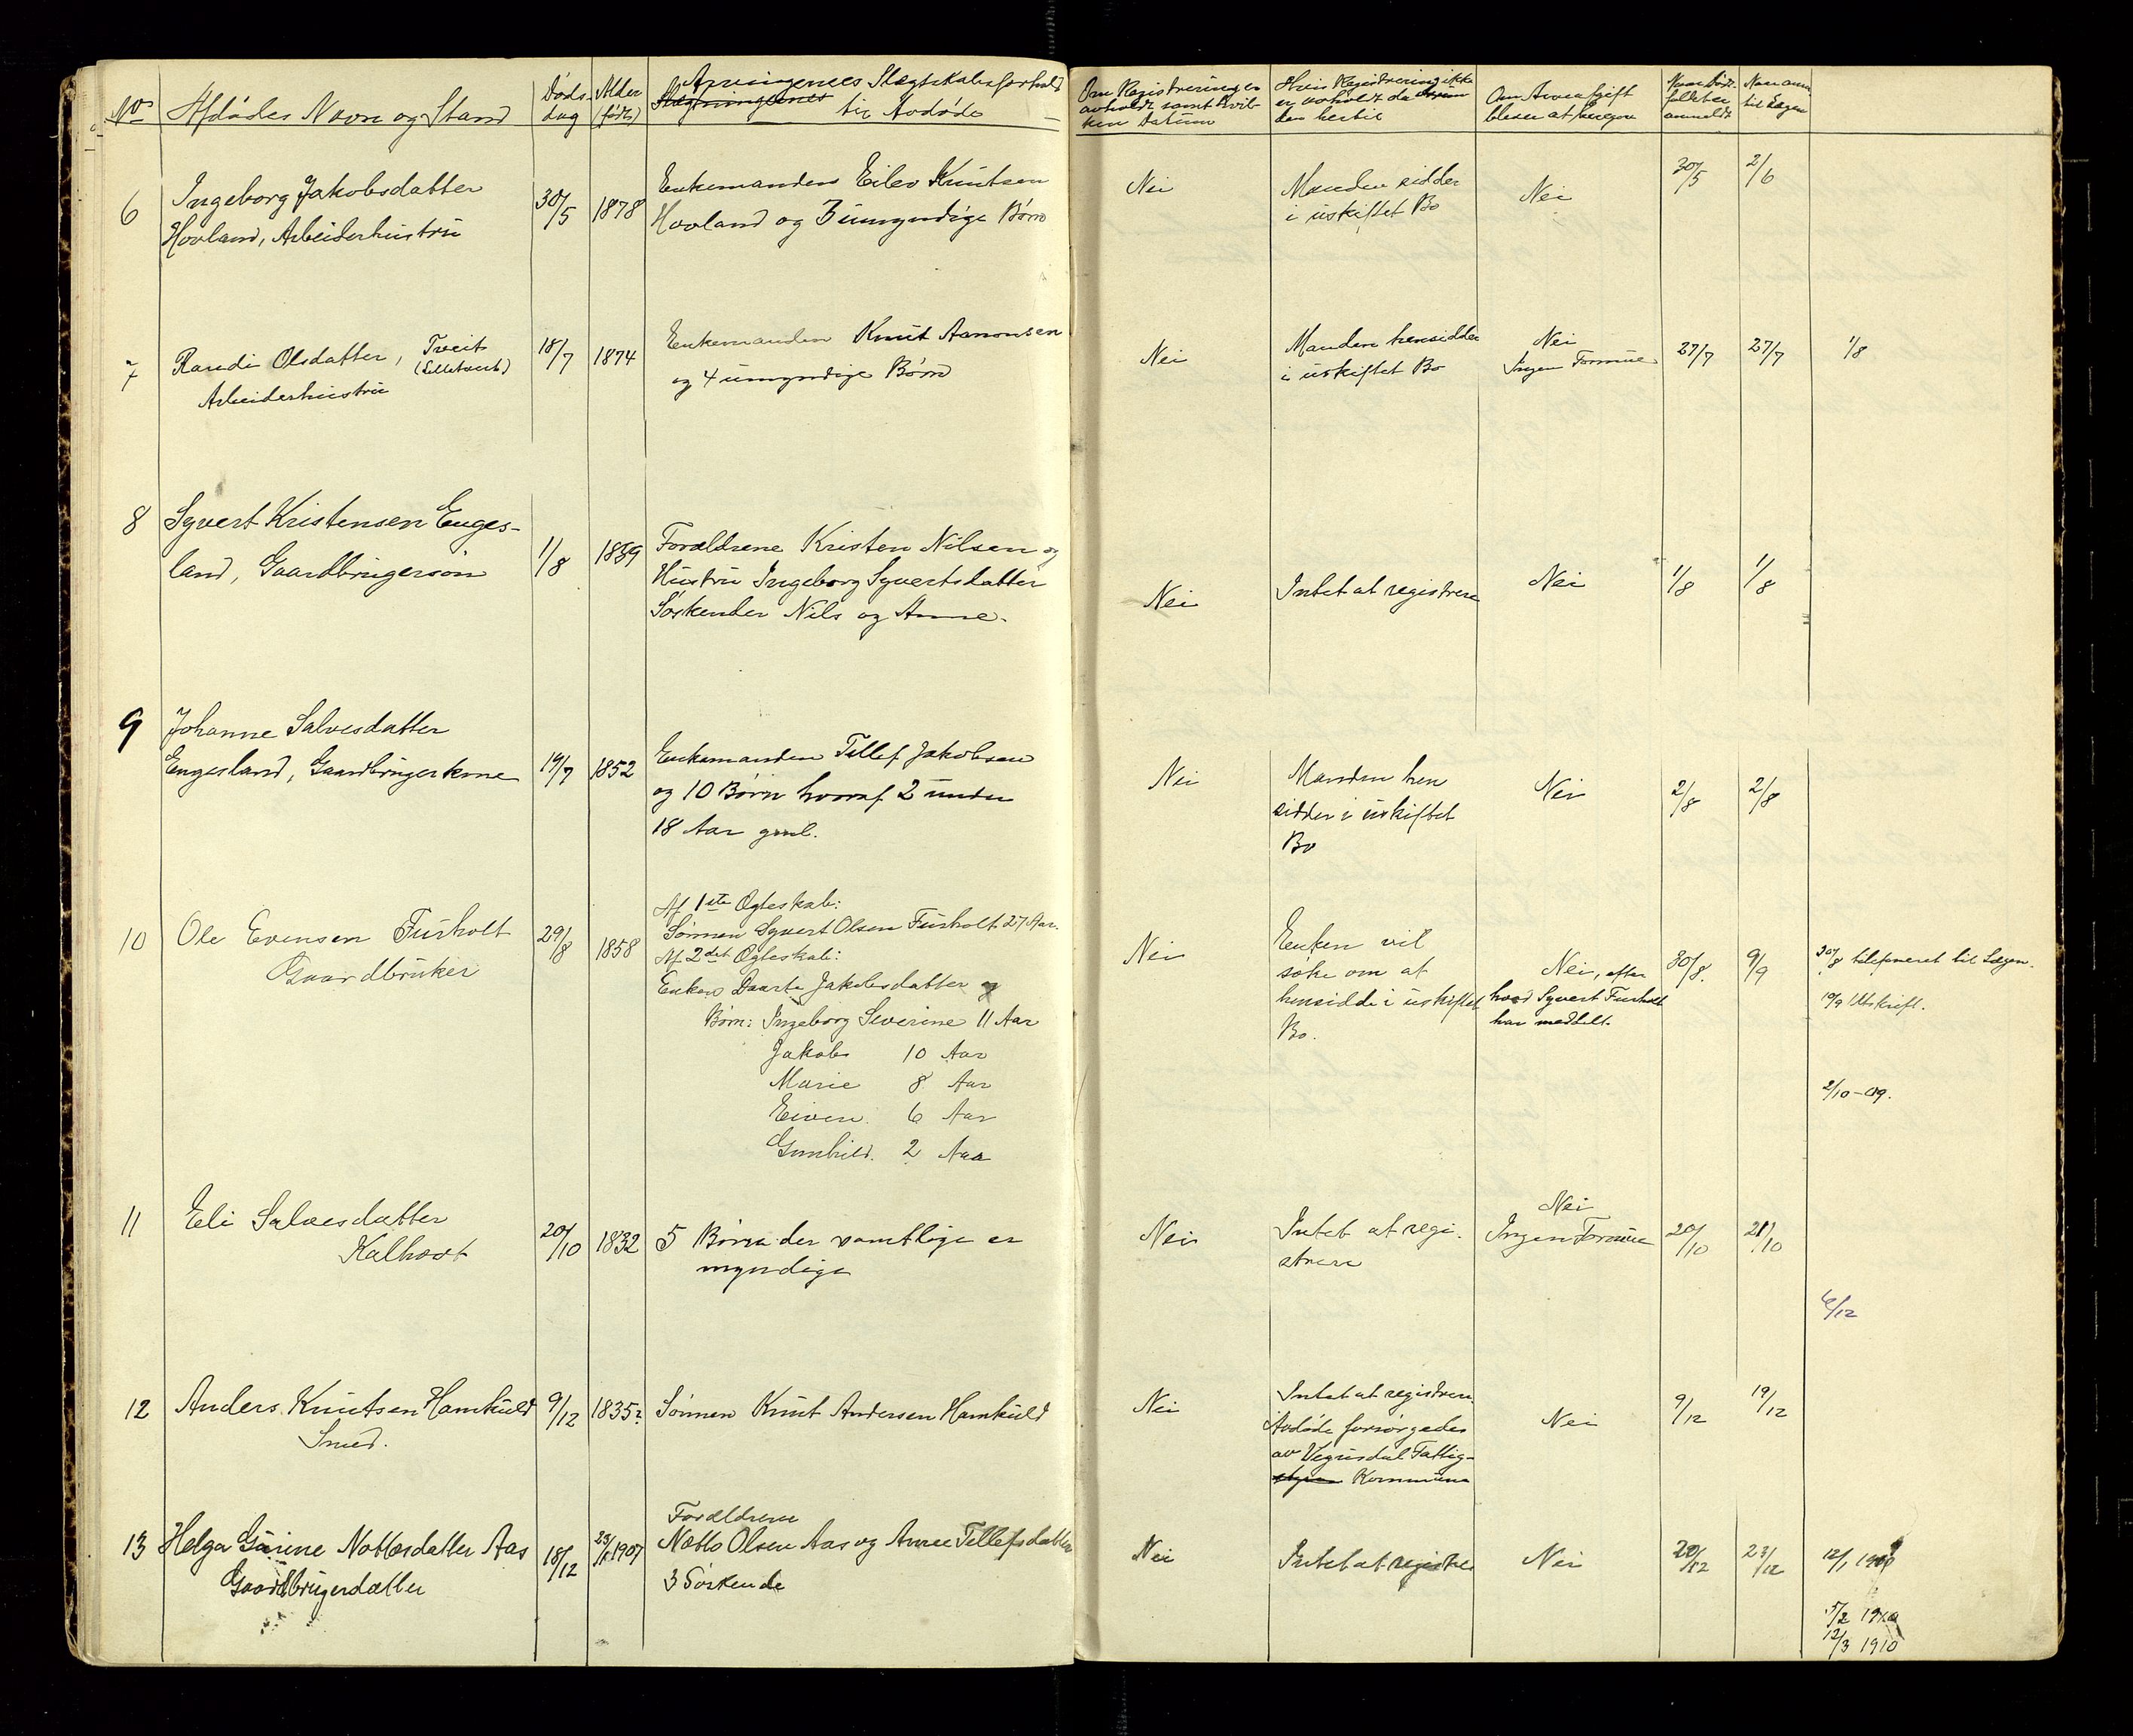 No
Afdødes Navn og Stand
Døds-
dag
Alder
(født)
Arvingernes Slægtskabsforhold
til Avdøde
Om Registrering er
avholdt samt hvil-
ken Datum
Hvis Registrering ikke
er avholdt da
den hertil
Om Arveafgift
bliver at beregne
Naar døds-
faldet er
anmeldt
Naar anm.
til Lægen
6
Ingeborg Jakobsdatter
Hovland, Arbeiderhustru
30/5
1878
Enkemanden Eilev Knutsen
Hovland og 3 umyndige Børn
Nei
Manden sidder
i uskiftet Bo
Nei
30/5
2/6
7
Randi Olsdatter, Tveit
Arbeiderhustru
18/7
1874
Enkemanden Knut Aanonsen
og 4 umyndige Børn
Nei
Manden hensidder
i uskiftet Bo
Nei
Ingen Formue
27/7
27/7
1/8
8
Syvert Kristensen Enges-
land, Gaardbrugersøn
1/8
Forældrene Kristen Nilsen og
Hustru Ingeborg Syvertsdatter
Søskender Nils og Anne.
Nei
Intet at registrere
Nei
1/8
1/8
9
Johanne Salvesdatter
Engesland, Gaardbrugerkone
19/7
1852
Enkemanden Tellef Jakobsen
og 10 Børn hvoraf 2 under
18 Aar gml.
Nei
Manden hen
sidder i uskiftet
Bo
Nei
2/8
2/8
10
Ole Evensen Fuholt
Gaardbruker
29/8
1858
Af 1ste Ægteskab:
Sønnen Syvert Olsen Furholt 27 Aar.
Af 2det Ægteskab:
Enken Daarte Jakobsdatter og
Børn: Ingeborg Severine 11 Aar
Jakob 10 Aar
Marie 8 Aar
Eiven 6 Aar
Gunhild. 2 Aar
Nei
Enken vil
søke om at
hensidde i uskiftet
Bo.
Nei, efter
hvad Syvert Furholt
har meddelt.
30/8.
9/9
30/8 telefoneret til Lægen.
10/9 Utskrift.
2/10-09.
11
Eli Salvesdatter
Kalhovt
20/10
1832
5 Børn der samtlige er
myndige
Nei
Intet at regi-
strere
Nei
Ingen Formue
20/10
21/10
6/12
12
Anders Knutsen Hamkuld
Smed.
9/12
1835?
Sønnen Knut Andersen Hamkuld
Nei
Intet at registrere.
Avdøde forsørgedes
av Vegusdal Fattig-
Kommune
Nei
9/12
19/12
13
Helga Gurine Nottosdatter Aas
Gaardbrugerdatter
18/12
1907
Forældrene
Notto Olsen Aas og Anne Tellefsdatter
3 Søskende
Nei
Intet at registre
Nei
20/12
23/12
12/1 1910
5/2 1910
12/3 1910